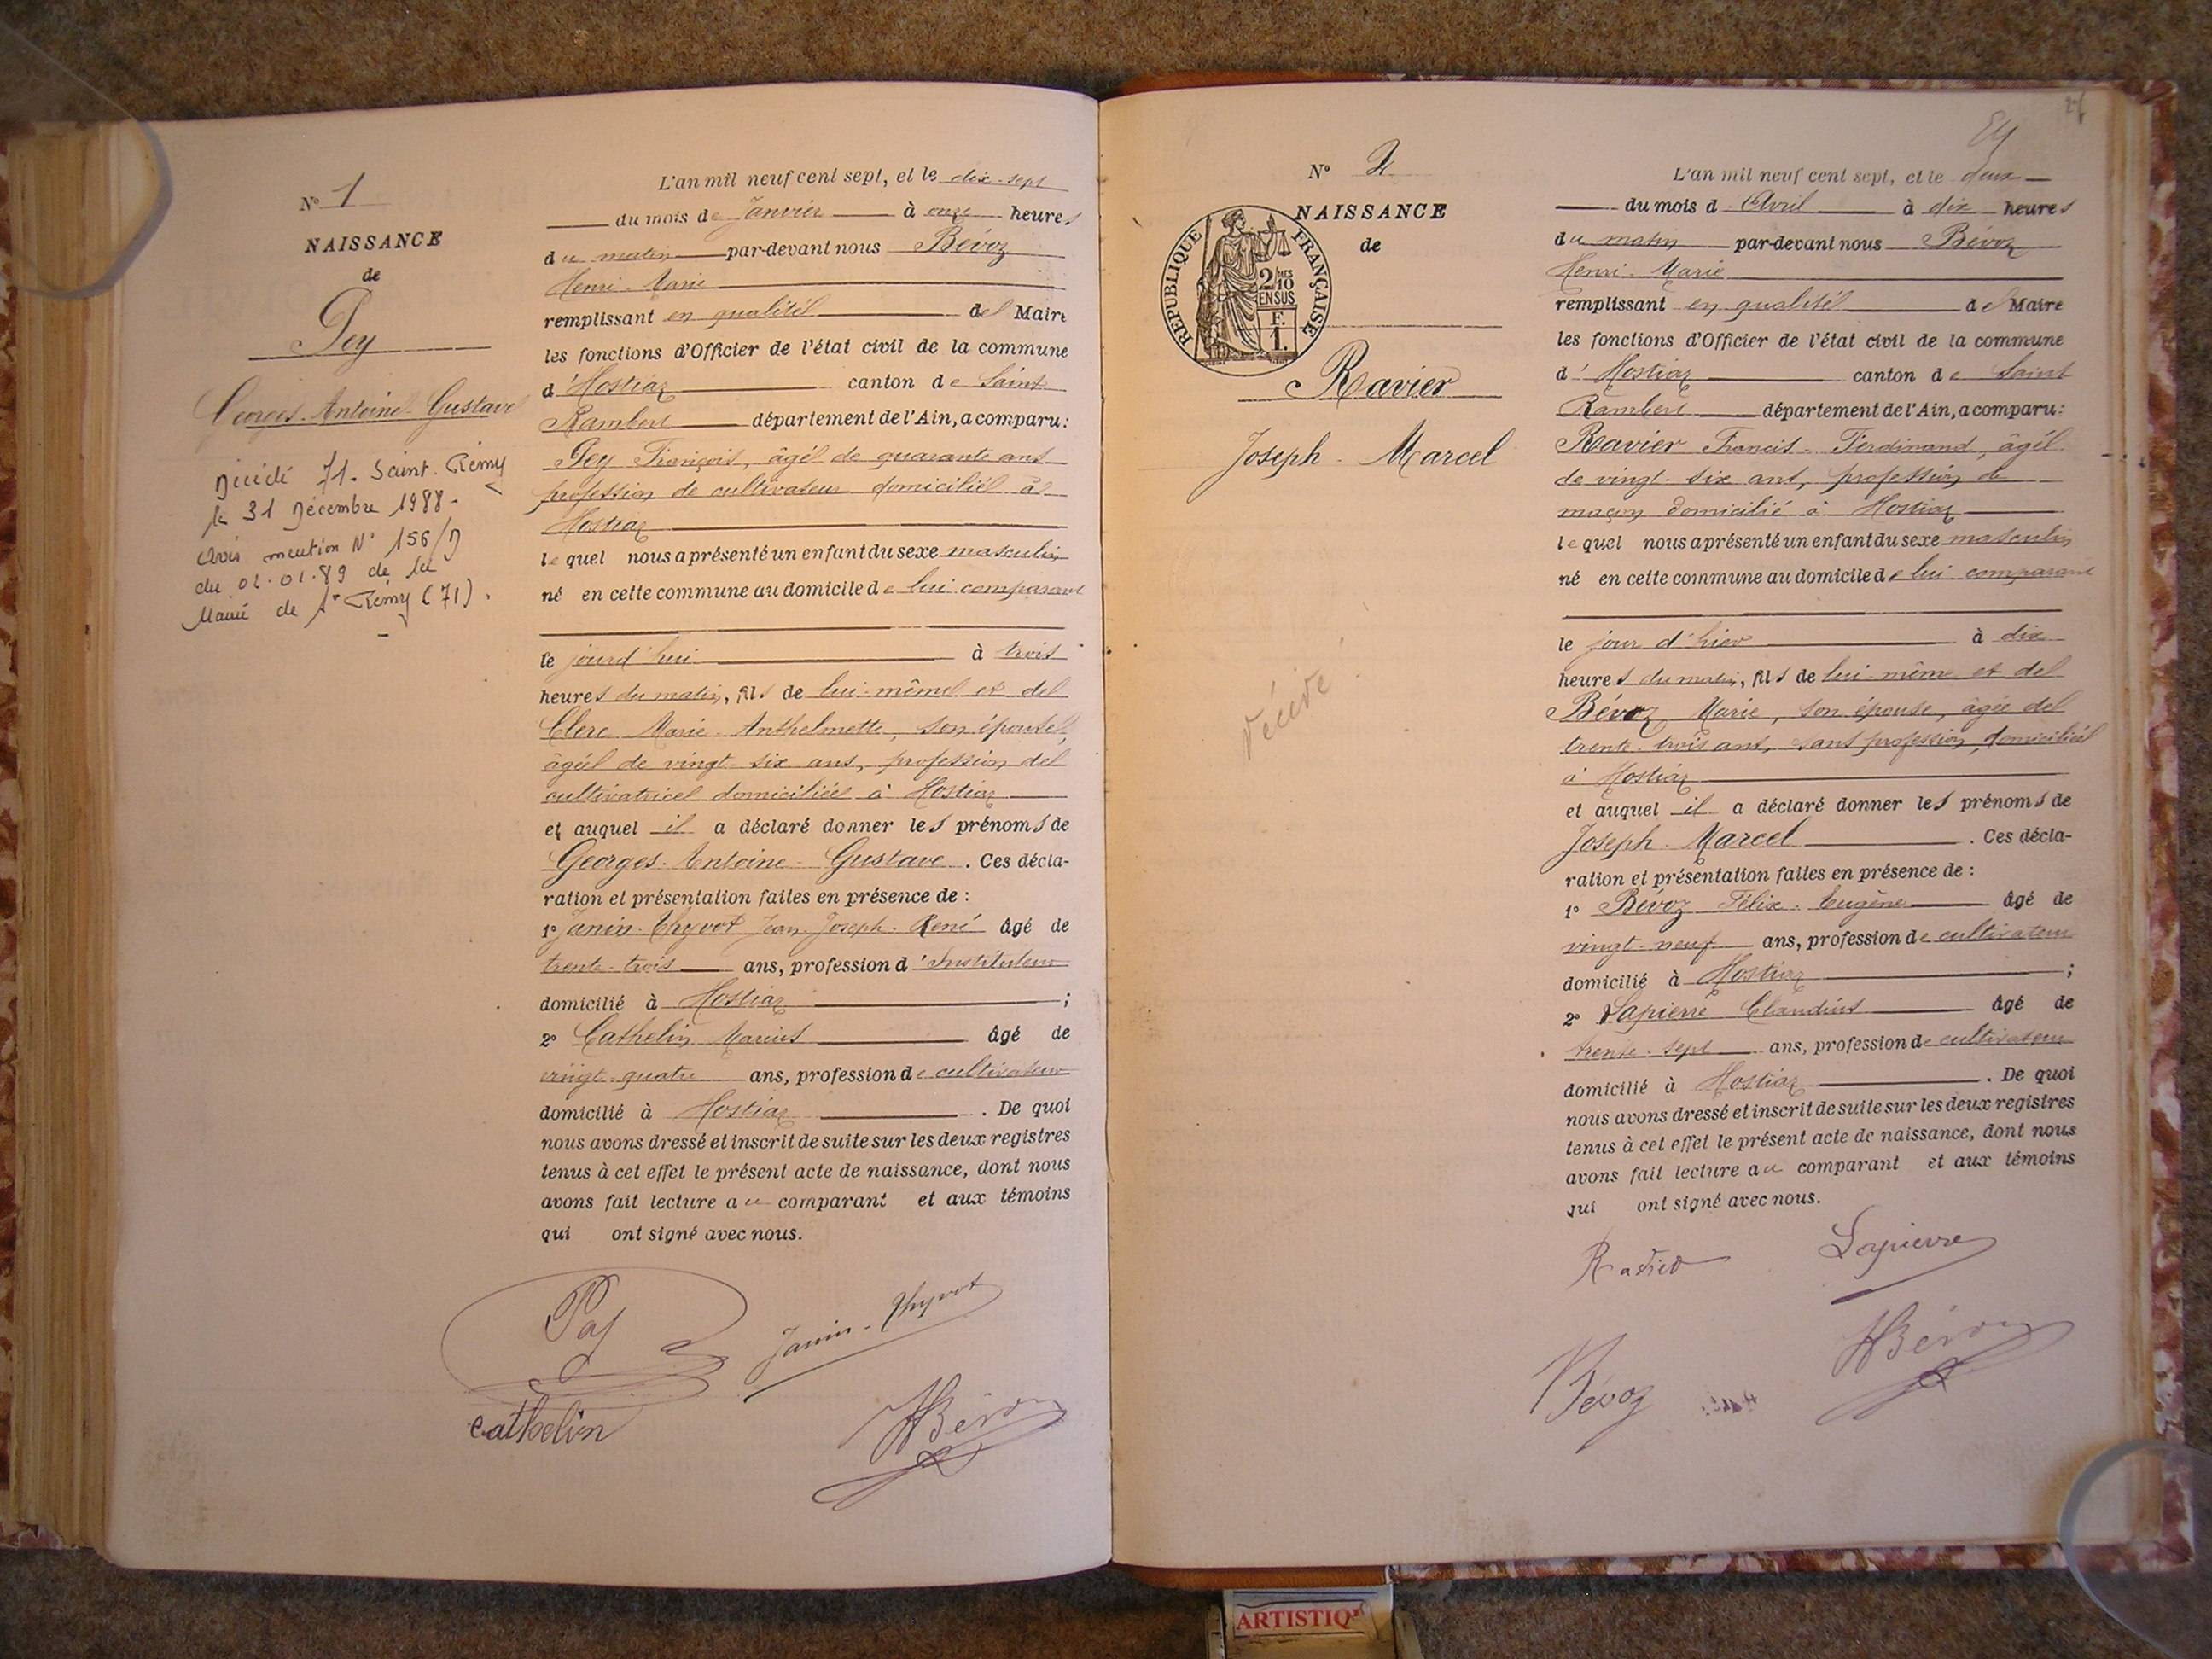 N° 1
NAISSANCE
de
Pey
Georges-Antoine-Gustave
Décédé 71 - Saint-Rémy
le 31 Décembre 1988 -
Avis mention N° 156/D
du 02.01.89 de la
Mairie de St Rémy (71).
L'an mil neuf cent sept, et le dix-sept
du mois de Janvier à onze heures
du matin par-devant nous Bévoz
Henri-Marie
remplissant en qualité de Maire
les fonctions d'Officier de l'état civil de la commune
d'Hostiaz canton de Saint
Rambert département de l'Ain, a comparu:
Pey François, âgé de quarante ans
profession de cultivateur domicilié à
Hostiaz
lequel nous a présenté un enfant du sexe masculin
né en cette commune au domicile de lui comparant
le jourd'hui à trois
heures du matin, fils de lui-même et de
Clerc Marie-Anthelmette, son épouse,
âgée de vingt-six ans, profession de
cultivatrice domiciliée à Hostiaz
et auquel il a déclaré donner les prénoms de
Georges-Antoine-Gustave. Ces décla-
ration et présentation faites en présence de :
1° Janin-Thyvot Jean-Joseph-René âgé de
trente-trois ans, profession d'Instituteur
domicilié à Hostiaz ;
2° Cathelin Marius âgé de
vingt-quatre ans, profession de cultivateur
domicilié à Hostiaz. De quoi
nous avons dressé et inscrit de suite sur les deux registres
tenus à cet effet le présent acte de naissance, dont nous
avons fait lecture au comparant et aux témoins
qui ont signé avec nous.
Pey
Janin-Thyvot
Cathelin
HBévoz
N° 2
NAISSANCE
de
RÉPUBLIQUE FRANÇAISE
2/10MES
EN SUS
F.
1.
Ravier
Joseph-Marcel
décédé
24
L'an mil neuf cent sept, et le deux
du mois d'Avril à dix heures
du matin par-devant nous Bévoz
Henri-Marie
remplissant en qualité de Maire
les fonctions d'Officier de l'état civil de la commune
d'Hostiaz canton de Saint
Rambert département de l'Ain, a comparu:
Ravier Francis-Ferdinand, âgé
de vingt-six ans, profession de
maçon domicilié à Hostiaz
lequel nous a présenté un enfant du sexe masculin
né en cette commune au domicile de lui comparant
le jour d'hier à dix
heures du matin, fils de lui-même et de
Bévoz Marie, son épouse, âgée de
trente-trois ans, sans profession, domiciliée
à Hostiaz
et auquel il a déclaré donner les prénoms de
Joseph-Marcel. Ces décla-
ration et présentation faites en présence de :
1° Bévoz Félix-Eugène âgé de
vingt-neuf ans, profession de cultivateur
domicilié à Hostiaz ;
2° Lapierre Claudius âgé de
trente-sept ans, profession de cultivateur
domicilié à Hostiaz. De quoi
nous avons dressé et inscrit de suite sur les deux registres
tenus à cet effet le présent acte de naissance, dont nous
avons fait lecture au comparant et aux témoins
qui ont signé avec nous.
Ravier
Lapierre
Bévoz
HBévoz
ARTISTIQ